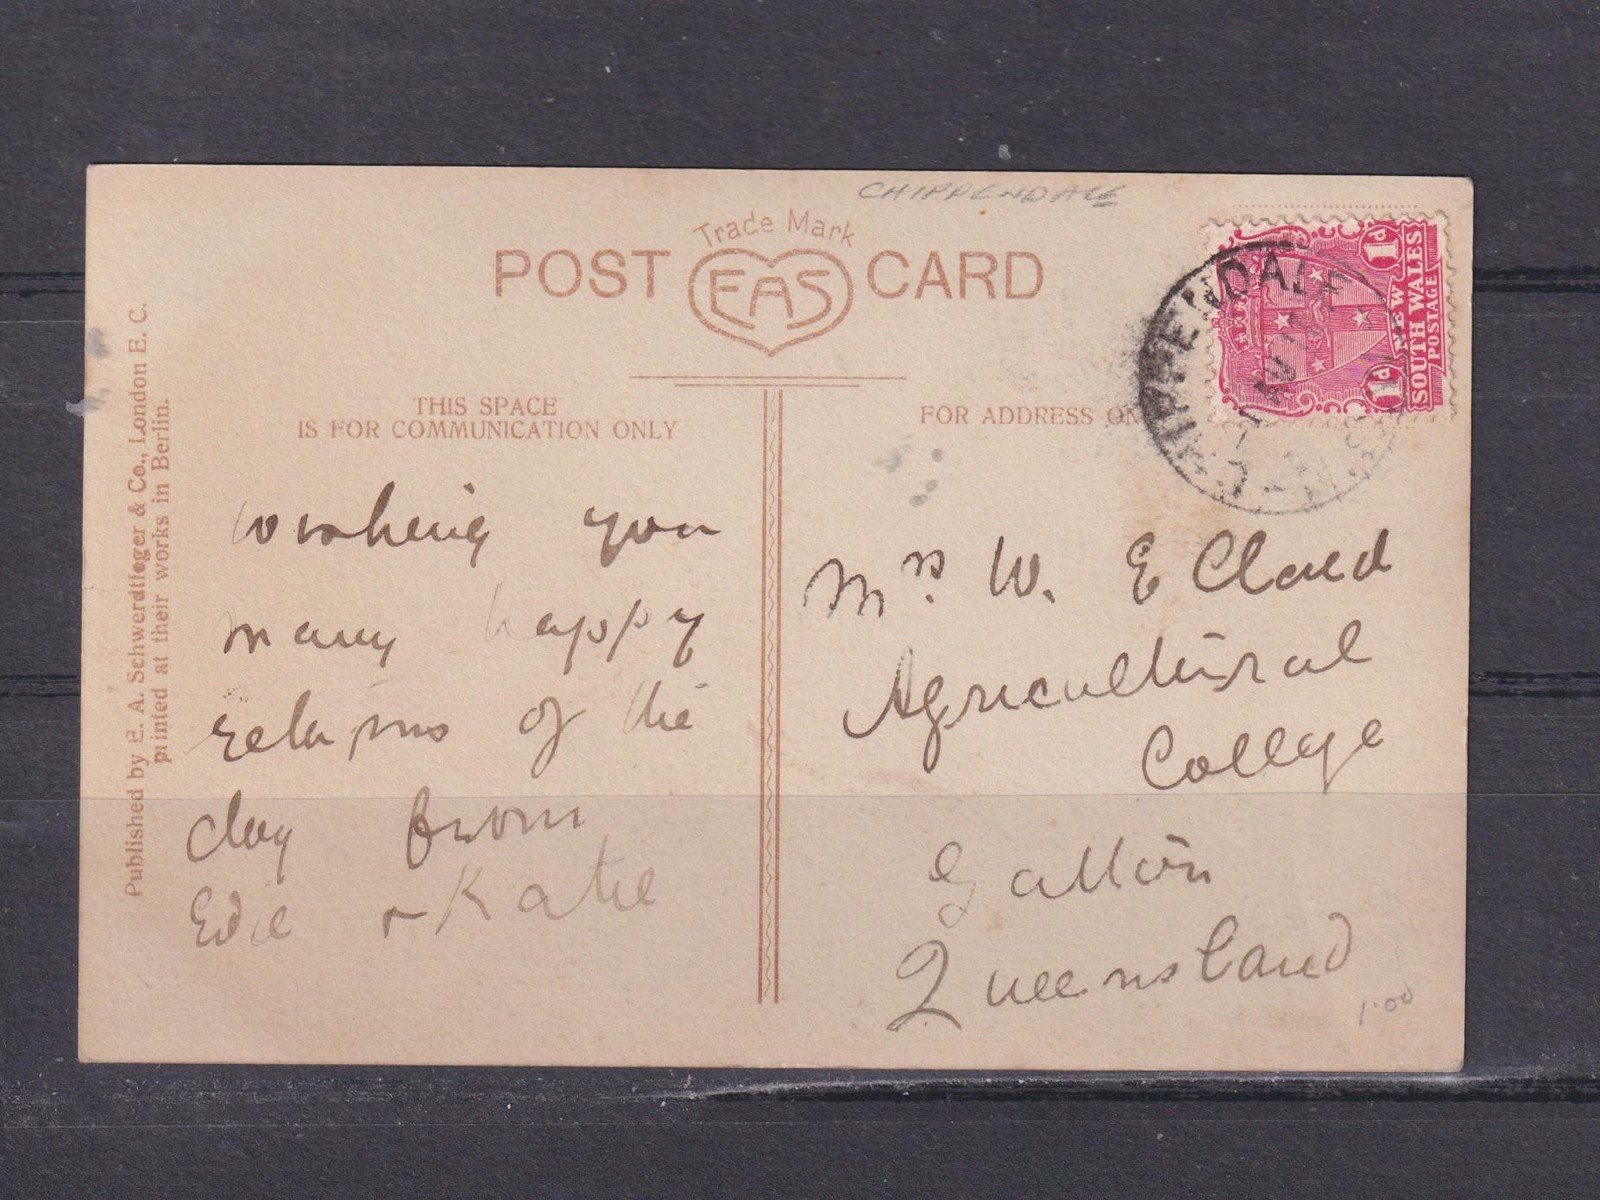 CHIPPENDALE
Trade Mark
POST EAS CARD
THIS SPACE
IS FOR COMMUNICATION ONLY
FOR ADDRESS ON
Published by E. A. Schwerdtfeger & Co., London E. C.
printed at their works in Berlin.
wishing you
many happy
returns of the
day from
Edie & Katie
1d
NEW
SOUTH WALES
POSTAGE
1d
CHIPPENDALE
N.S.W
Mrs. W. E Claud
Agricultural
College
Gatton
Queensland
1.00